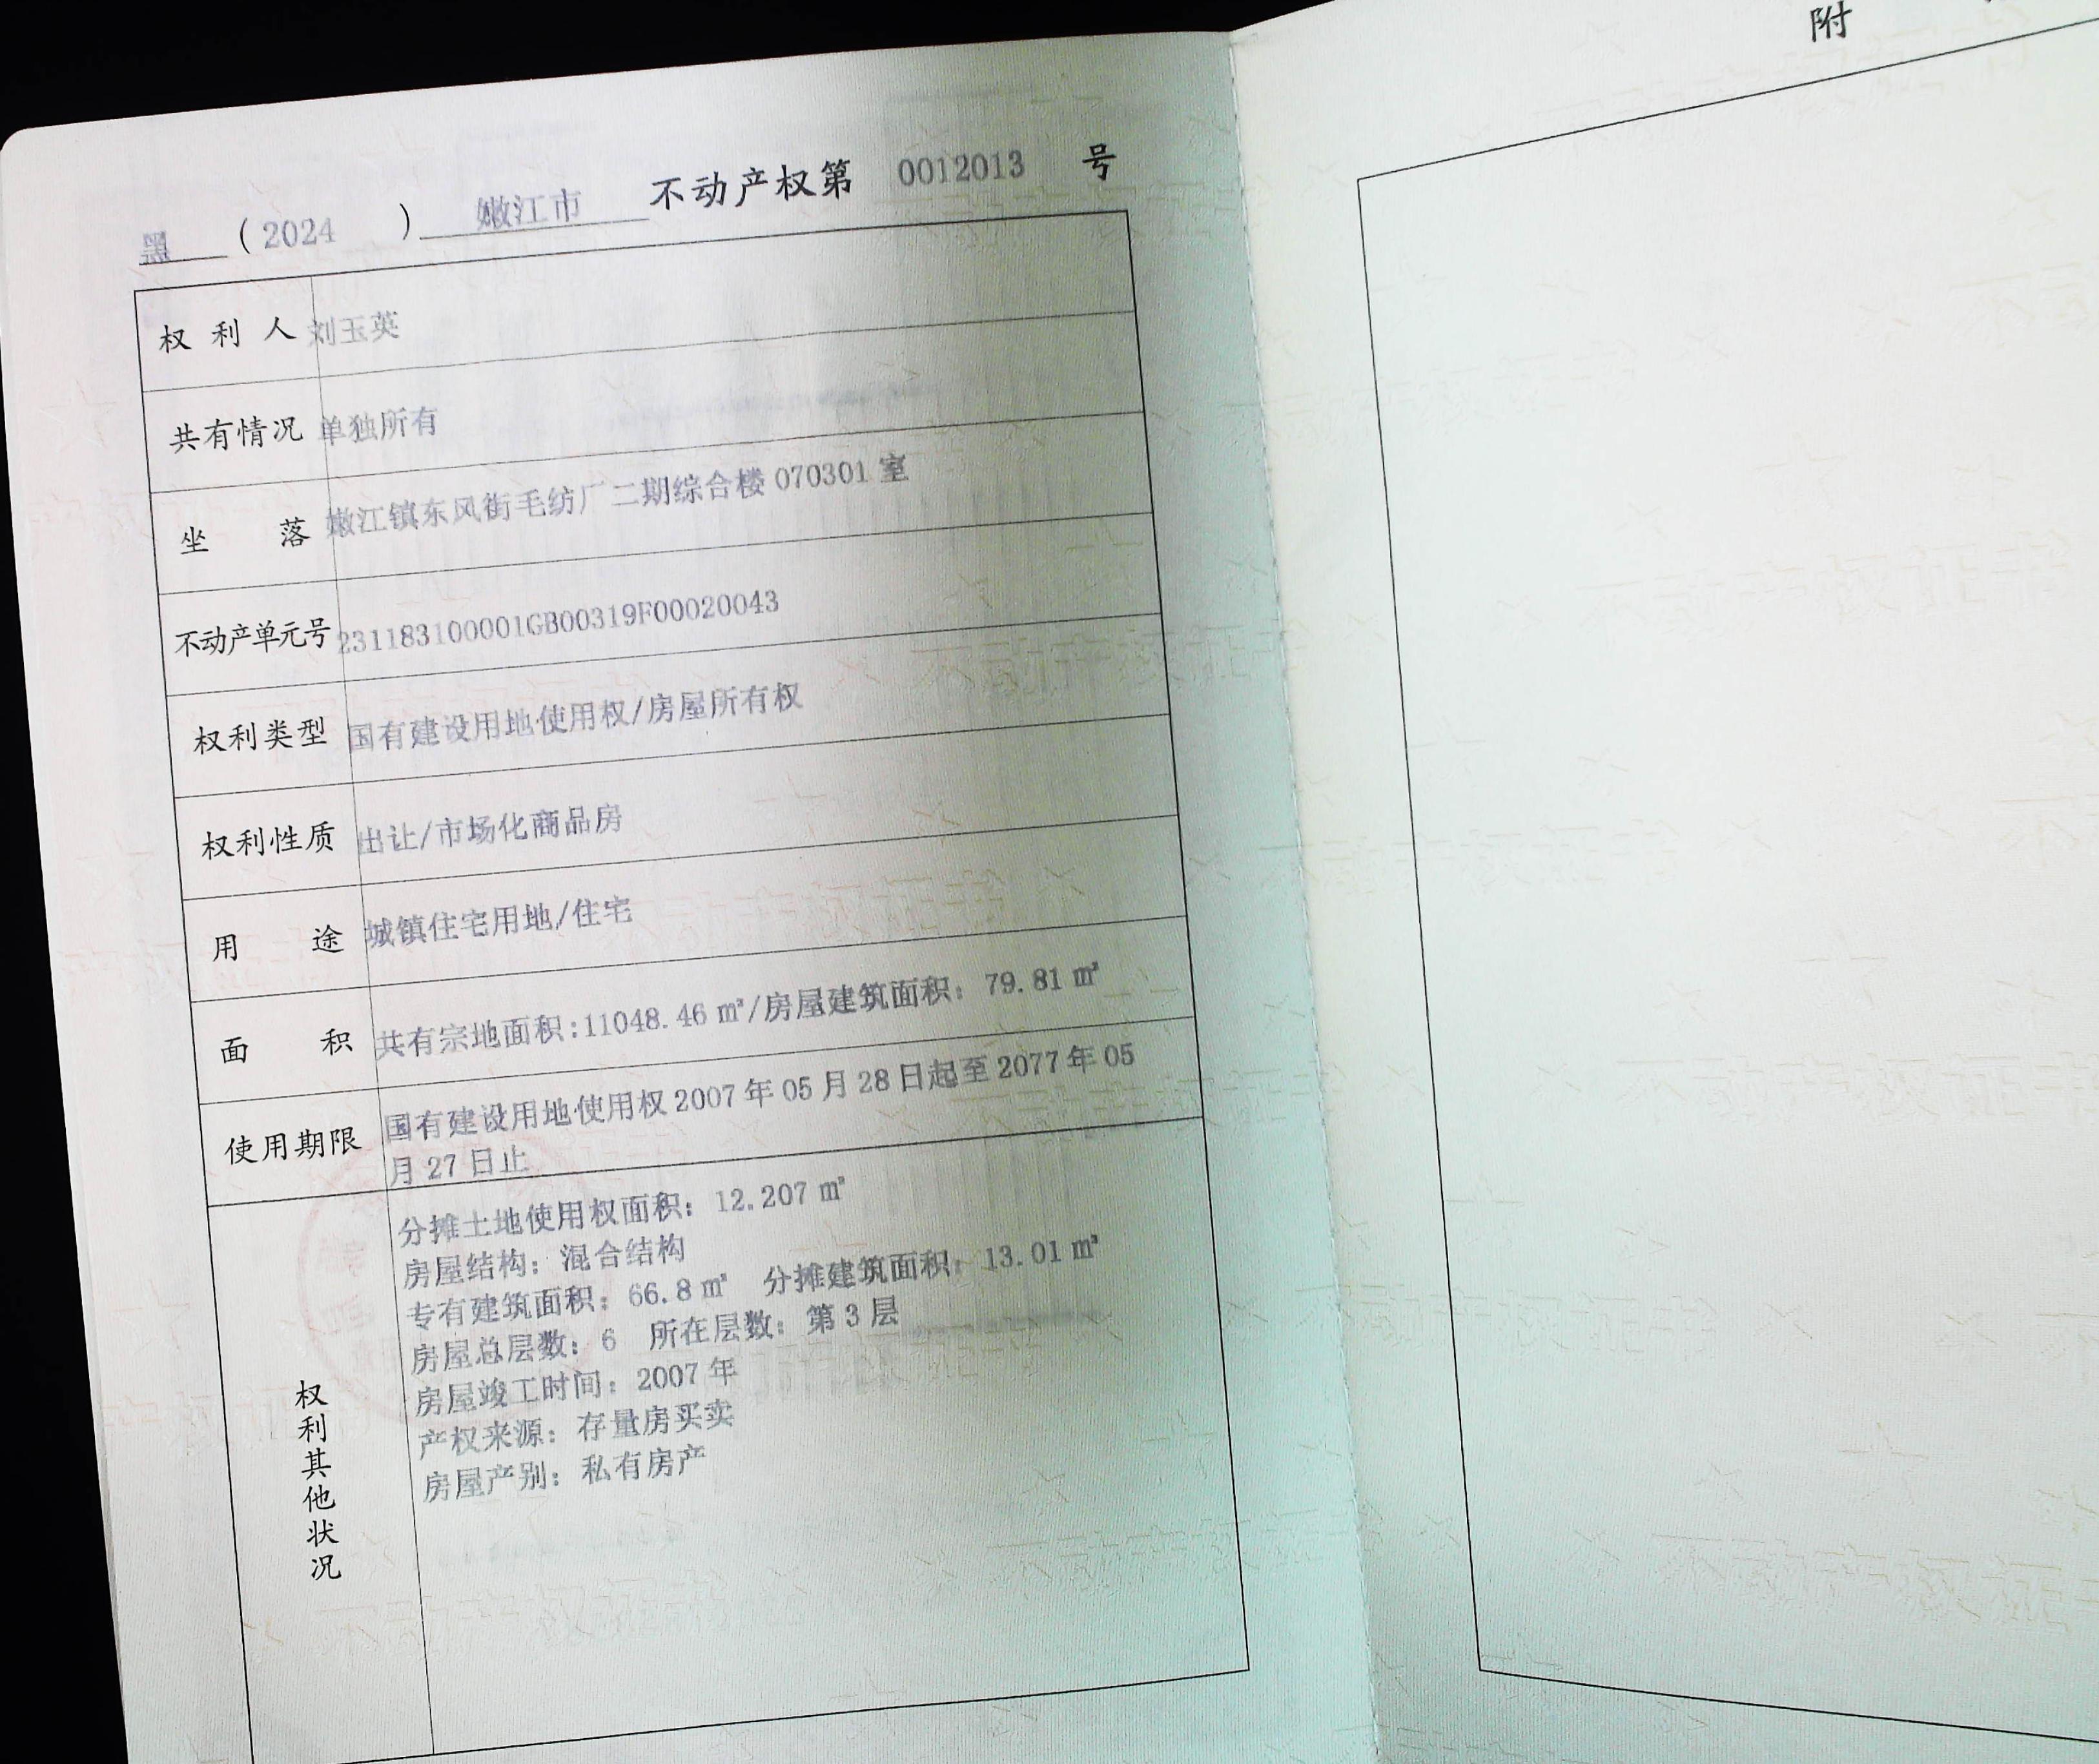 黑 (2024) 嫩江市 不动产权第 0012013 号
附
权利人 刘玉英
共有情况 单独所有
坐落 嫩江镇东风街毛纺厂二期综合楼 070301 室
不动产单元号 231183100001GB00319F00020043
权利类型 国有建设用地使用权/房屋所有权
权利性质 出让/市场化商品房
用途 城镇住宅用地/住宅
面积 共有宗地面积:11048.46 ㎡/房屋建筑面积：79.81 ㎡
使用期限 国有建设用地使用权 2007 年 05 月 28 日起至 2077 年 05
月 27 日止
权利其他状况
分摊土地使用权面积：12.207 ㎡
房屋结构：混合结构
专有建筑面积：66.8 ㎡ 分摊建筑面积：13.01 ㎡
房屋总层数：6 所在层数：第 3 层
房屋竣工时间：2007 年
产权来源：存量房买卖
房屋产别：私有房产